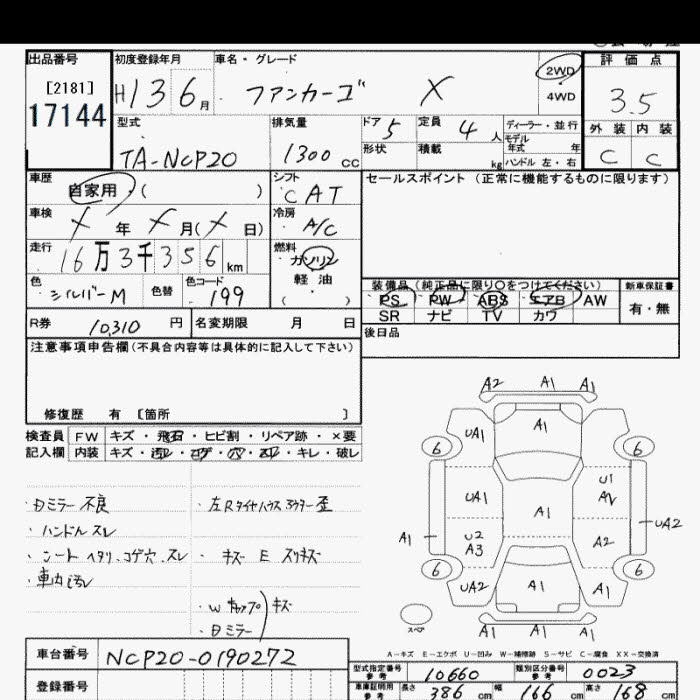 出品番号 初度登録年月 車名・グレード 2WD 4WD 評価点
[2181]
17144 H13 6月 ファンカーゴ X 3.5
型式 排気量 ドア 5 定員 4人 ディーラー・並行 外装 内装
TA-NCP20 1300cc 形状 積載 kg モデル年式 年 ハンドル 左・右 C C
車歴 シフト セールスポイント (正常に機能するものに限ります)
自家用・( ) CAT
車検 X年X月(X日) 冷房 A/C
走行 16万3千356km 燃料 ガソリン
軽油
( )
色 シルバーM 色替 色コード 199
装備品 (純正品に限り○をつけてください) 新車保証書
PS PW ABS エアB AW 有・無
SR ナビ TV カワ
R券 10,310円 名変期限 月 日 後日品
注意事項申告欄(不具合内容等は具体的に記入して下さい)
修復歴 有 〔箇所 〕
検査員 FW キズ・飛石・ヒビ割・リペア跡・×要
記入欄 内装 キズ・汚レ・コゲ・穴・スレ・キレ・破レ
・日ミラー不良 ・左Rタイヤハウスアウター歪
・ハンドルスレ
・シートヘタリ、コゲ穴、スレ ・キズ E スリキズ
・車内汚レ
・Wキャップ キズ
・日ミラー
A2 A1 A1
UA1 A1
6 6
UA1 U1
A1
A1 U2 A3 A2 UA2
6 6
UA2 A1 A1
スペア A1 A1 A1
A-キズ E-エクボ U-凹み W-補修跡 S-サビ C-腐食 XX-交換済
車台番号 NCP20-0190272
型式指定番号 参考 10660 類別区分番号 参考 0023
登録番号 車庫証明用 参考 長さ 386cm 幅 166cm 高さ 168cm